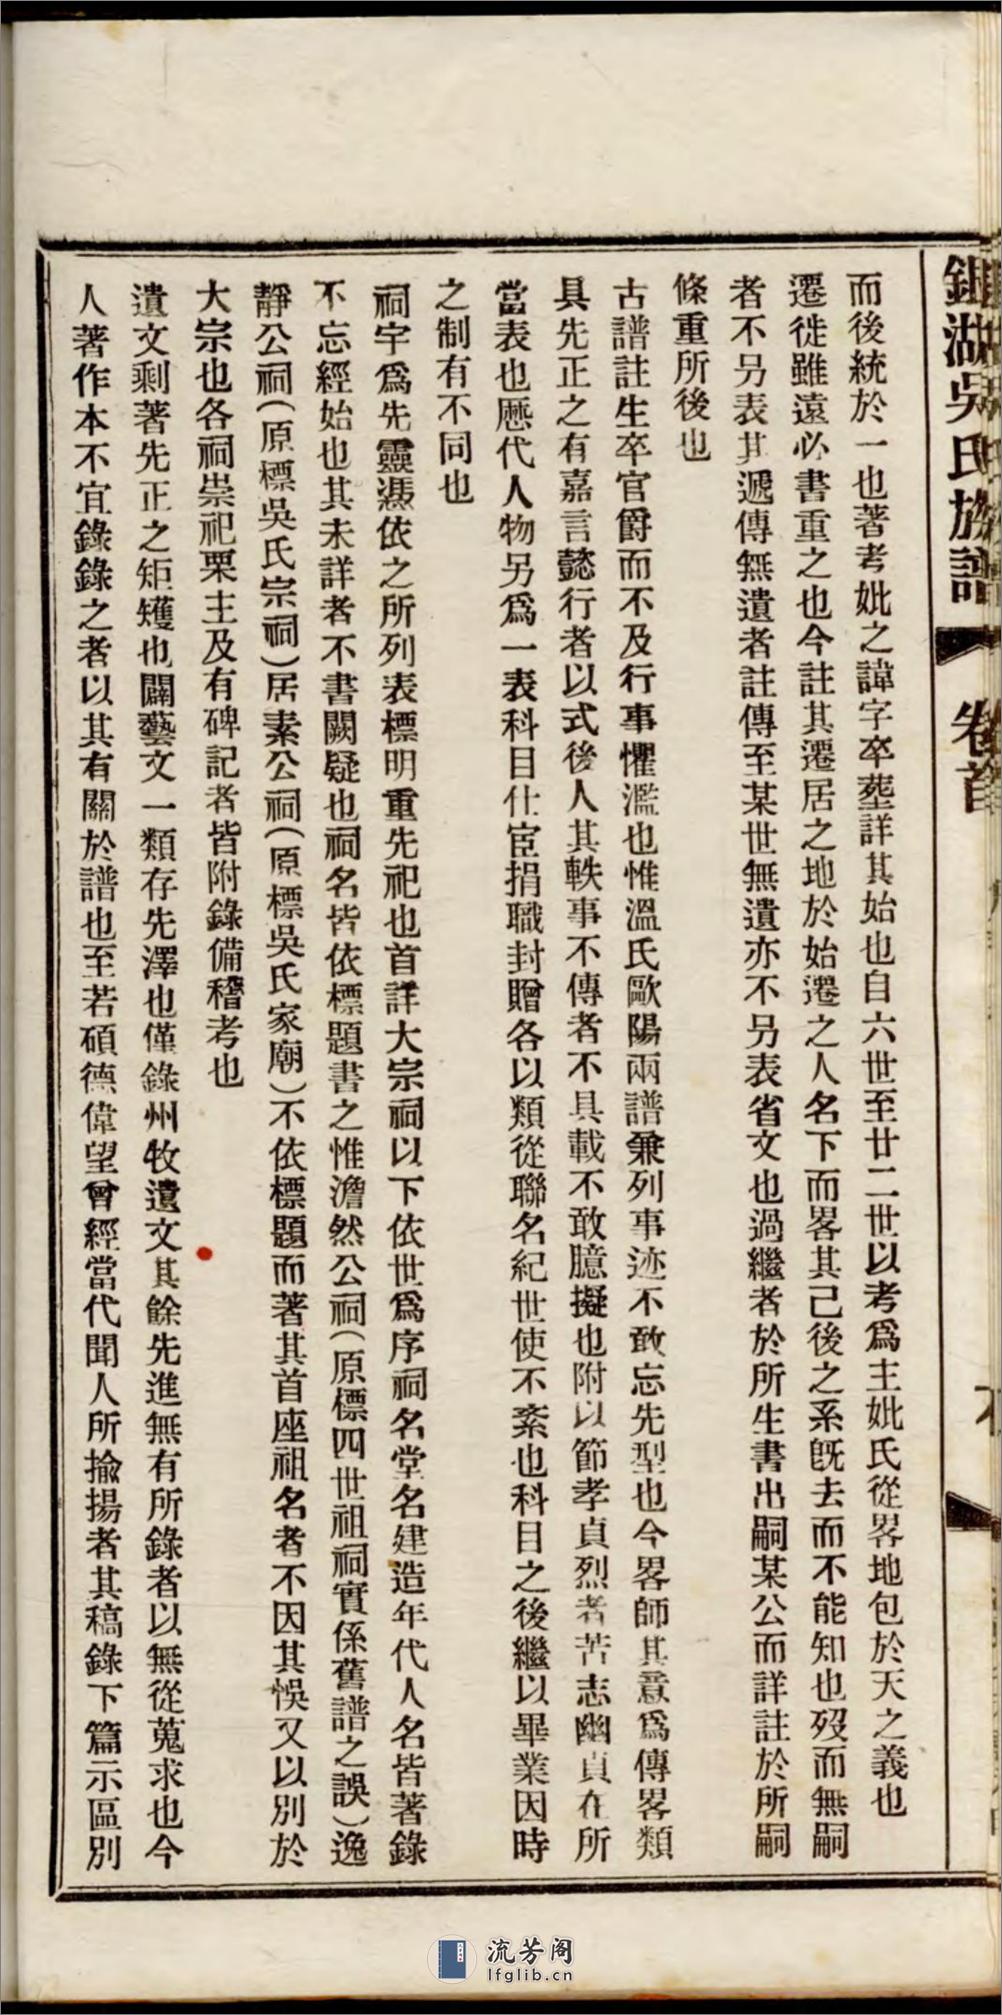 湖吳氏族譜 卷首
而後統於一也著考妣之諱字卒塟詳其始也自六世至廿二世以考爲主妣氏從畧地包於天之義也
遷徙雖遠必書重之也今註其遷居之地於始遷之人名下而畧其己後之系旣去而不能知也歿而無嗣
者不另表其遞傳無遺者註傳至某世無遺亦不另表省文也過繼者於所生書出嗣某公而詳註於所嗣
條重所後也
古譜註生卒官爵而不及行事懼濫也惟溫氏歐陽兩譜兼列事迹不敢忘先型也今畧師其意爲傳畧類
具先正之有嘉言懿行者以式後人其軼事不傳者不具載不敢臆擬也附以節孝貞烈者苦志幽貞在所
當表也歷代人物另爲一表科目仕宦捐職封贈各以類從聯名紀世使不紊也科目之後繼以畢業因時
之制有不同也
祠宇爲先靈憑依之所列表標明重先祀也首詳大宗祠以下依世爲序祠名堂名建造年代人名皆著錄
不忘經始也其未詳者不書闕疑也祠名皆依標題書之惟澹然公祠(原標四世祖祠實係舊譜之誤)逸
靜公祠(原標吳氏宗祠)居素公祠(原標吳氏家廟)不依標題而著其首座祖名者不因其悞又以別於
大宗也各祠祟祀栗主及有碑記者皆附錄備稽考也
遺文剩著先正之矩矱也闢藝文一類存先澤也僅錄州牧遺文其餘先進無有所錄者以無從蒐求也今
人著作本不宜錄錄之者以其有關於譜也至若碩德偉望曾經當代聞人所揄揚者其稿錄下篇示區別
流芳阁
lfglib.cn